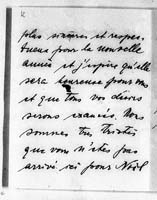 plus sincères et respec-
tueux pour la nouvelle
année et j'espère qu'elle
sera heureuse pour vous
et que tous vos désirs
serons exaucés Nous
sommes tus tristes
que vous n'êtes pas
arrivé ici pour Noël